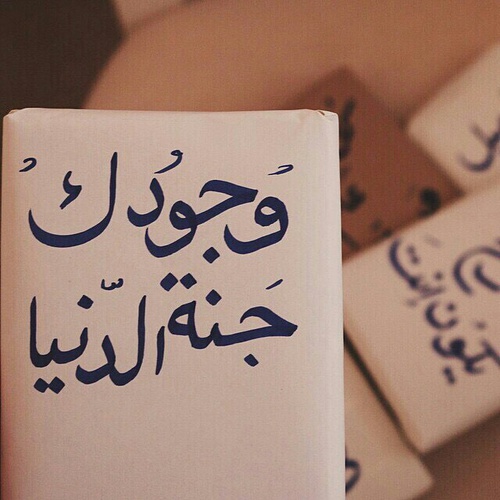 وُجودُكُ
جَنة الدّنيا
تكون انت